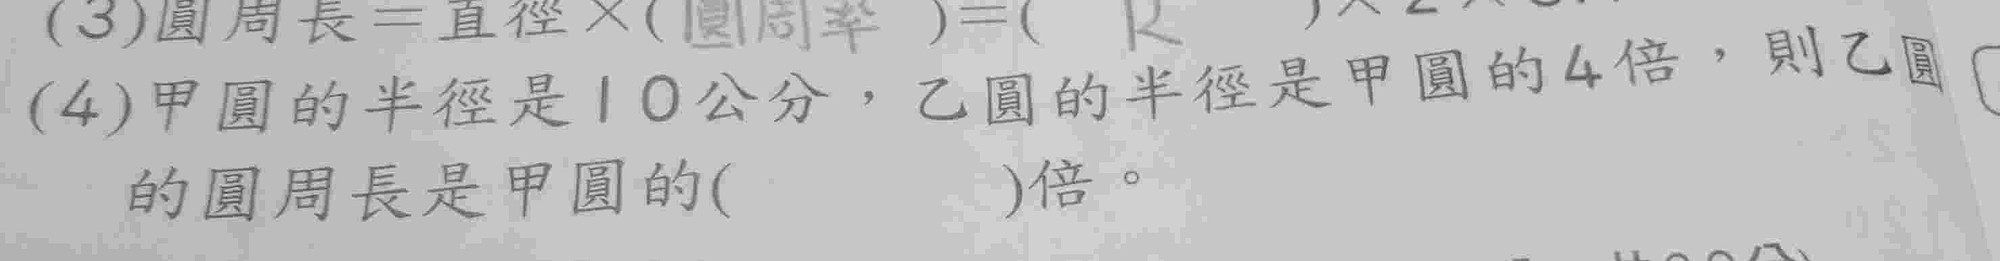 (3)圓周長＝直徑×(圓周率)＝( R )×2×3.
(4)甲圓的半徑是10公分，乙圓的半徑是甲圓的4倍，則乙圓
的圓周長是甲圓的(　　　)倍。